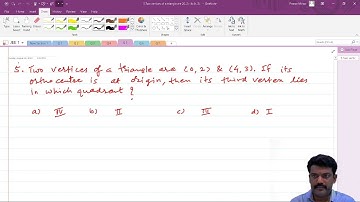 5. Two vertices of a triangle are (0,2) & (4,3). If its
orthocentre is at origin, then its third vertex lies
in which quadrant?
a) IV b) II c) III d) I